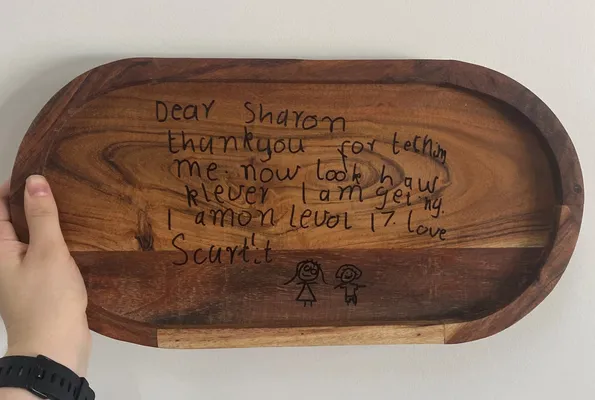 Dear Sharon
thankyou for techin
me. now look haw
klever I am geting.
I amon level 17. love
Scurtit